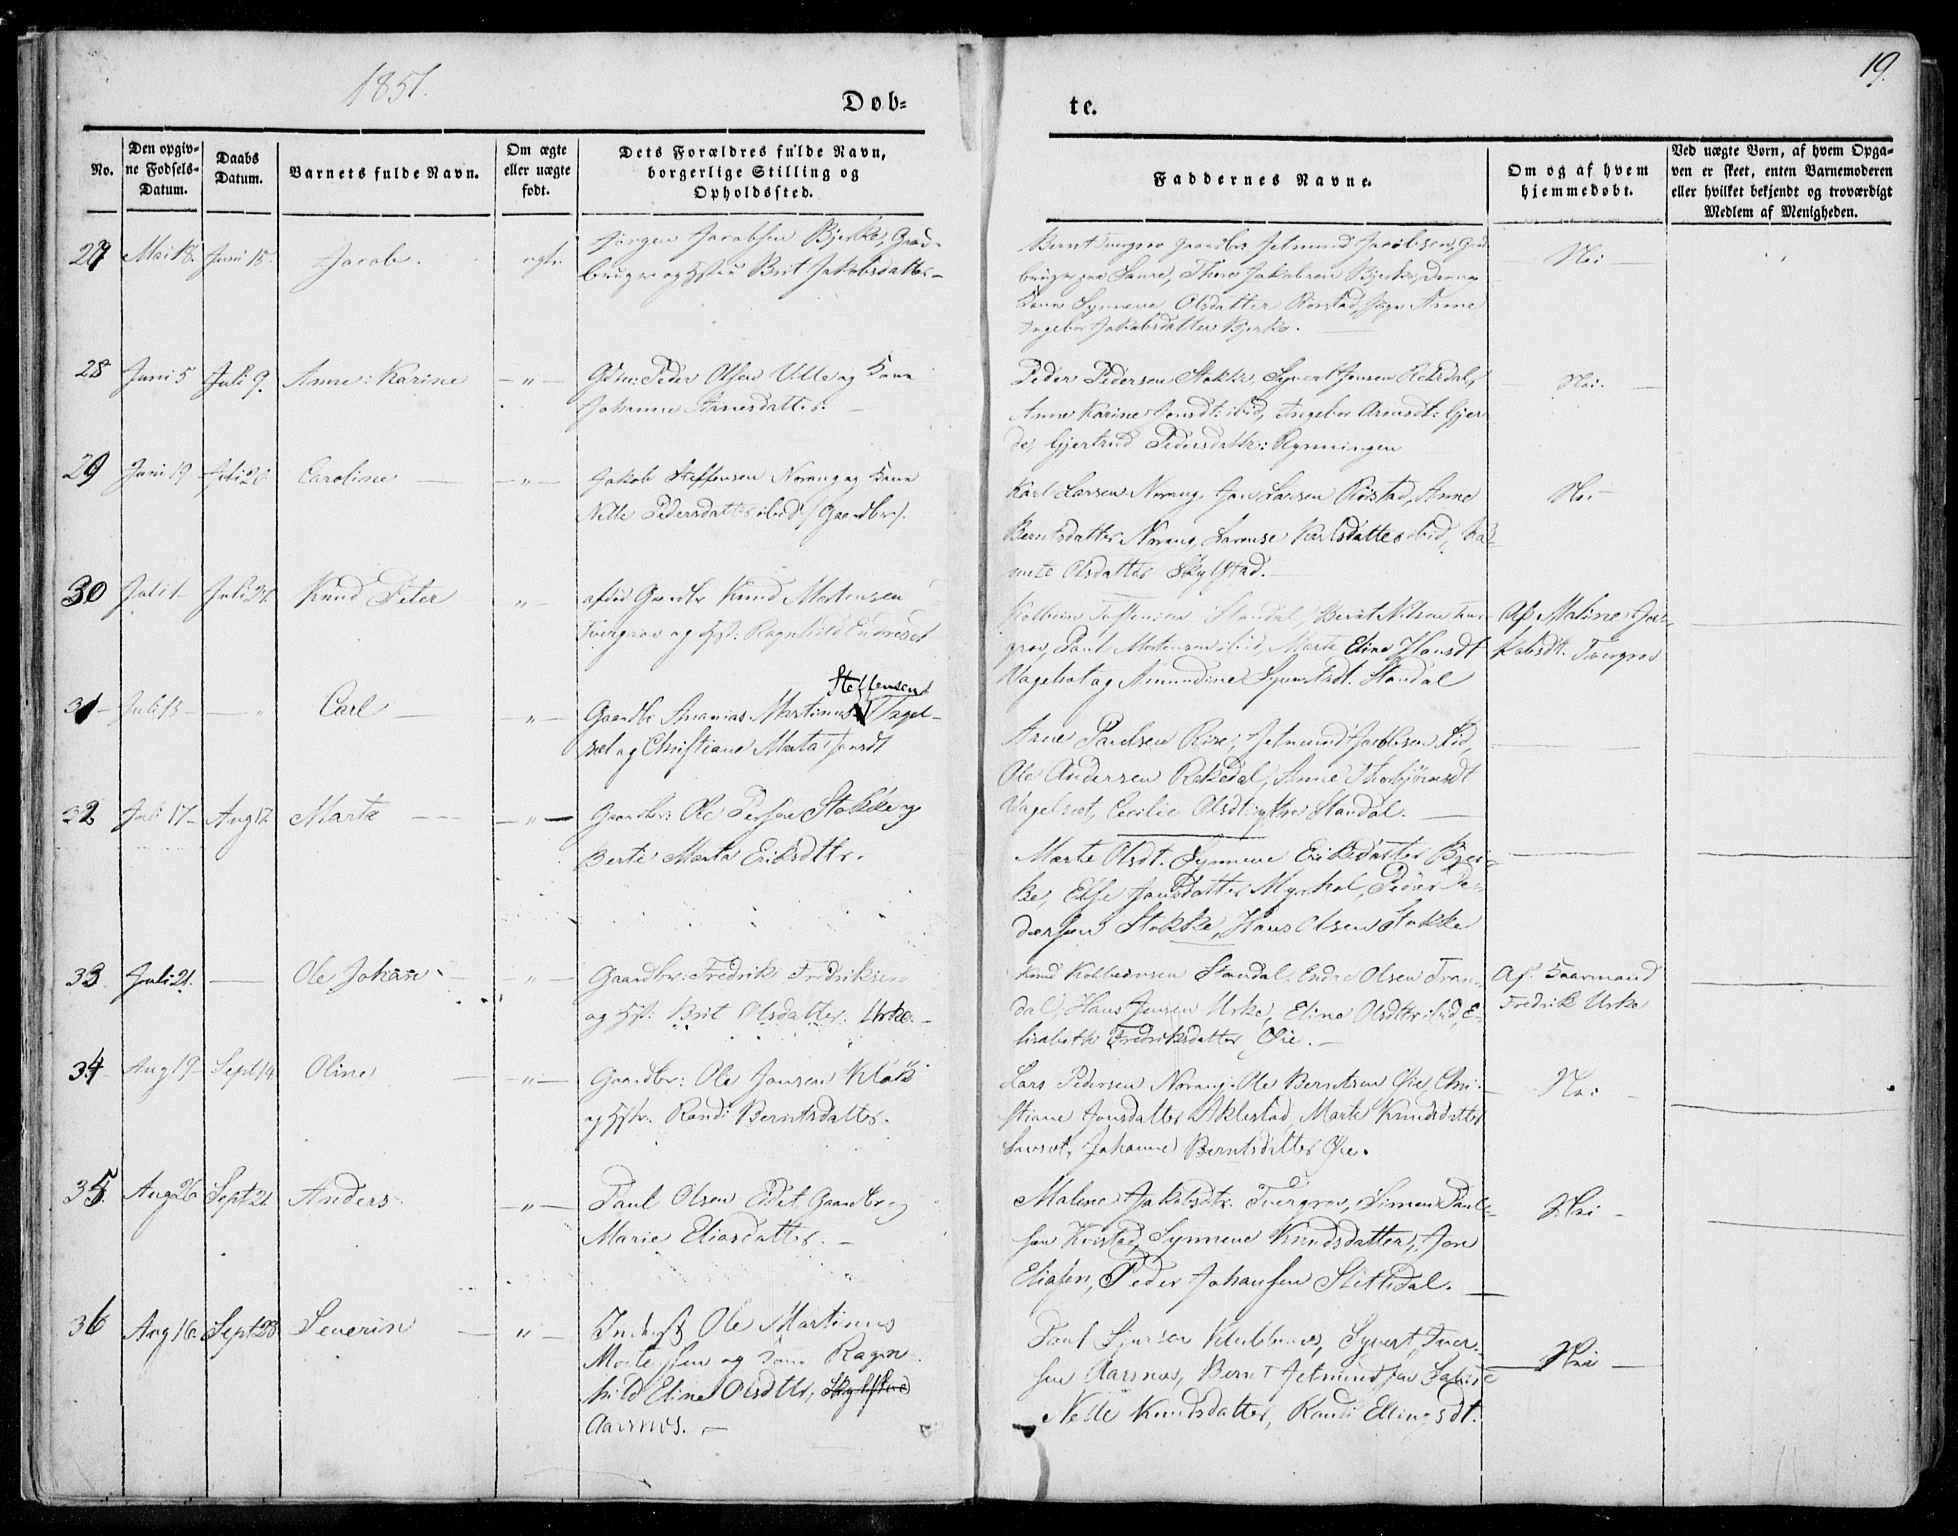 1851.
19.
Døb=
te.
No.
Den opgiv-
ne Fødsels-
Datum.
Daabs
Datum.
Barnets fulde Navn.
Om ægte
eller uægte
født.
Dets Forældres fulde Navn,
borgerlige Stilling og
Opholdssted.
Faddernes Navne.
Om og af hvem
hjemmedøbt.
Ved uægte Børn, af hvem Opga-
ven er skeet, enten Barnemoderen
eller hvilket bekjendt og troværdigt
Medlem af Menigheden.
27 Mai 18. Juni 15. Jacob. ægte
Jørgen Jacobsen Bjerke, Gaard-
bruger og Brit Jakobsdatter-
Bernt Tvergrov Gaardbr. Jetmund Jacobsen, Gaard
bruger paa Saure, Thore Jakobsen Bjerke,
Kone Synneve Olsdatter Rørstad, Pige Anne
Ingebor Jakobsdatter Bjerke.
Nei
28 Juni 5 Juli 9. Anne Karine — „ —
Gdm: Peder Olsen Ulle og Kone
Johanne Arnesdatter. —
Peder Pedersen Stokke, Syvert Jonsen Rekedal,
Anne Karine Jonsdt: ibid, Ingebor Arnesdt: Gjer-
de, Gjertrud Pedersdatter: Rynningen
Nei.
29 Juni 19 Juli 20. Caroline — „ —
Jakob Steffensen Norang og Kone
Nelle Pedersdatter ibid /Gaardbr/.
Karl Larsen Norang, Jon Larsen Rørstad, Anne
Berntsdatter Norang, Larense Karlsdatter ibid,
Olsdatter Skylstad.—
Nei
30 Juli 1 Juli 27. Knud Peter — „ —
Gaardbr Knud Mortensen
Tvergrov og Hst: Ragnhild Endresdt
Kolbein Steffensen Standal, Bernt Nilsen Tver
grov, Paul Mortensen ibid, Marte Eline Hansdt
Vagelsæt og Amundine Syvertsdt. Standal
Af Maline Ja-
kobsdt. Tvergrov
31 Juli 13 — „ Carl — „ —
Steffensen
Gaardbr Ananias Martinus Vagel-
sæt og Christiane Marta Jonsdt
Arne Paulsen Rise, Jetmund Jacobsen Lid,
Ole Andersen Rekedal, Anne Thorbjørnsdt
Vagelsæt, Cecilie Olsdt: yttre Standal. —
32 Juli 17 Aug 17. Marta — „ —
Gaardbr: Ole Persen Stokke og
Berte Marta Eriksdttr.
Marte Olsdt. Synneve Eriksdatter Bjer-
ke, Else Jonsdatter Myrhol, Peder Pe-
dersen Stokke, Hans Olsen Stokke
33 Juli 21. — Ole Johan — „ —
Gaardbr: Fredrik Fredriksen
og Hst: Brit Olsdatter. Urke. —
Knud Kolbeinsen Standal, Endre Olsen Tran-
dal, Hans Jensen Urke, Eline Olsdttr ibid, E-
lisabeth Fredriksdatter Øie. —
Af Kaarmand
Fredrik Urke
34 Aug 19 Sept 14 Oline — „ —
Gaardbr: Ole Jonsen Klok
og Hstr. Randi Berntsdatter.
Lars Pedersen Norang, Ole Berntsen Øie, Chri-
stiane Jonsdatter Aklestad, Marte Knudsdatter
Johanne Berntsdatter Øie.
Nei
35 Aug 26 Sept 21 Anders — „ —
Paul Olsen Eidet Gaardbr og
Marie Eliasdatter. —
Malene Jakobsdtr. Tvergrov, Simen Paul-
sen Kvistad, Synneve Knudsdatter, Jon
Eliasen, Peder Johansen Slettedal.
Nei —
36 Aug 16 Sept 28 Severin — „ —
Inderst Ole Martinus
Mortessen og Kone Ragn-
hild Eline Olsdttr, Skylstad
Aarsnes. —
Paul Sjursen Klubbenes, Syvert Iver-
sen Aarsnes, Bernt Jetmundsen
Nelle Knudsdatter, Randi Ellingsdt.
Nei —